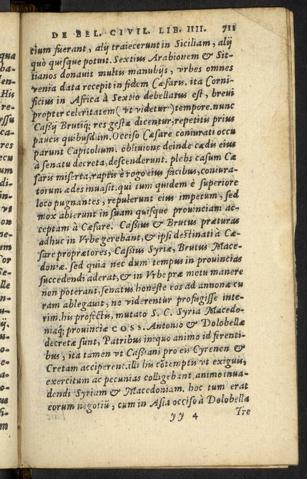 DE BEL. CIVIL. LIB. IIII. 711
tium fuerant, alij traiecerunt in Siciliam, alij
quò quisque potuit. Sextius Arabionem & Sit-
tianos donauit multis manubijs, vrbes omnes
venia data recepit in fidem Cæsaris. ita Corni-
ficius in Africa à Sextio debellatus est, breui
propter celeritatem (vt videtur) tempore. nunc
Cassij Brutiq; res gestæ dicentur, repetitis prius
paucis quibusdam. Occiso Cæsare coniurati occu
parunt Capitolium. obliuione deinde cædis eius
à senatu decreta, descenderunt. plebs casum Cæ
saris miserta, raptis è rogo eius facibus, coniura-
torum ædes inuasit. qui tum quidem è superiore
loco pugnantes, repulerunt eius impetum, sed
mox abierunt in suam quisque prouinciam ac-
ceptam à Cæsare. Cassius & Brutus præturas
adhuc in Vrbe gerebant, & ipsi destinati à Cæ-
sare proprætores, Cassius Syriæ, Brutus Mace-
doniæ. sed quia nec dum tempus in prouincias
succedendi aderat, & in Vrbe præ metu manere
non poterant, senatus honeste eos ad annonæ cu
ram ablegauit, ne viderentur profugisse inte-
rim. his profectis, mutato S. C. Syria Macedo-
niaq; prouinciæ COSS. Antonio & Dolobellæ
decretæ sunt, Patribus iniquo animo id ferenti-
bus, ita tamen vt Cassiani pro eis Cyrenen &
Cretam acciperent. illi his cōtemptis vt exiguis,
exercitum ac pecunias colligebant, animo inua-
dendi Syriam & Macedoniam. hoc tum erat
eorum negotiū, cum in Asia occiso à Dolobella
YY 4
Tre